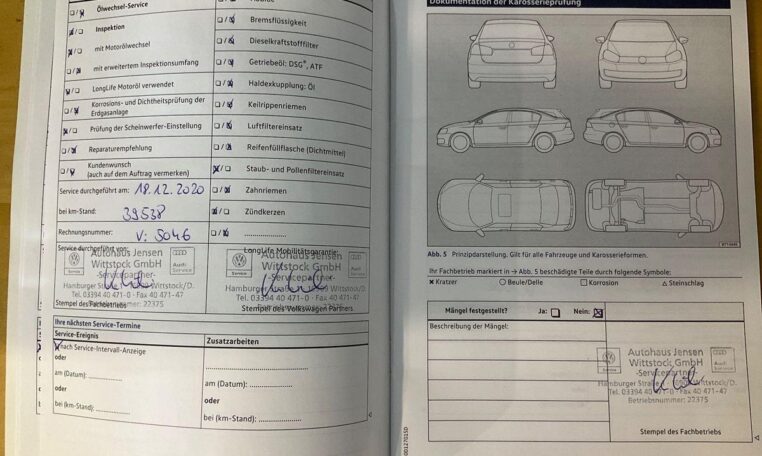 Ölwechsel-Service
Inspektion
mit Motorölwechsel
mit erweitertem Inspektionsumfang
LongLife Motoröl verwendet
Korrosions- und Dichtheitsprüfung der
Erdgasanlage
Prüfung der Scheinwerfer-Einstellung
Reparaturempfehlung
Kundenwunsch
(auch auf dem Auftrag vermerken)
Service durchgeführt am: 18.12.2020
bei km-Stand: 39538
Rechnungsnummer: V: 5046
Bremsflüssigkeit
Dieselkraftstofffilter
Getriebeöl: DSG®, ATF
Haldexkupplung: Öl
Keilrippenriemen
Luftfiltereinsatz
Reifenfüllflasche (Dichtmittel)
Staub- und Pollenfiltereinsatz
Zahnriemen
Zündkerzen
Service durchgeführt von:
Autohaus Jensen
Wittstock GmbH
-Servicepartner-
Hamburger Wittstock/D.
Tel. 03394 40 471-0 · Fax 40 471-47
Betriebsnummer: 22375
Stempel des Fachbetriebs
LongLife Mobilitätsgarantie:
Autohaus Jensen
Wittstock GmbH
-Servicepartner-
Hamburger Wittstock/D.
Tel. 03394 40 471-0 · Fax 40 471-47
Betriebsnummer: 22375
Stempel des Volkswagen Partners
Ihre nächsten Service-Termine
Service-Ereignis
nach Service-Intervall-Anzeige
oder
am (Datum):
oder
bei (km-Stand):
Zusatzarbeiten
am (Datum):
oder
bei (km-Stand):
Dokumentation der Karosserieprüfung
Abb. 5 Prinzipdarstellung. Gilt für alle Fahrzeuge und Karosserieformen.
Ihr Fachbetrieb markiert in → Abb. 5 beschädigte Teile durch folgende Symbole:
Kratzer Beule/Delle Korrosion Steinschlag
Mängel festgestellt? Ja: Nein:
Beschreibung der Mängel:
Autohaus Jensen
Wittstock GmbH
-Servicepartner-
Hamburger Wittstock/D.
Tel. 03394 40 471-0 · Fax 40 471-47
Betriebsnummer: 22375
Stempel des Fachbetriebs